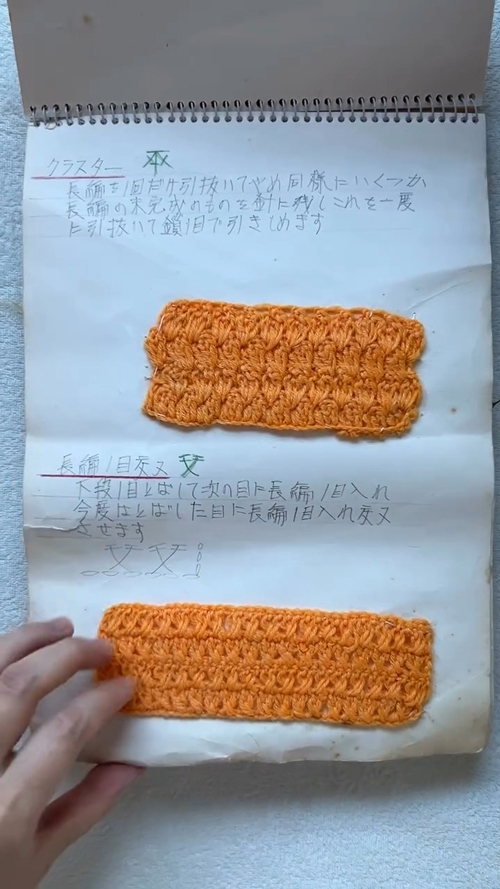 クラスター
長編を1回だけ引抜いてやめ同様にいくつか
長編の未完成のものを針に残しこれを一度
に引抜いて鎖1目で引きしめます
長編1目交叉
下段1目とばして次の目に長編1目入れ
今度はとばした目に長編1目入れ交叉
させます